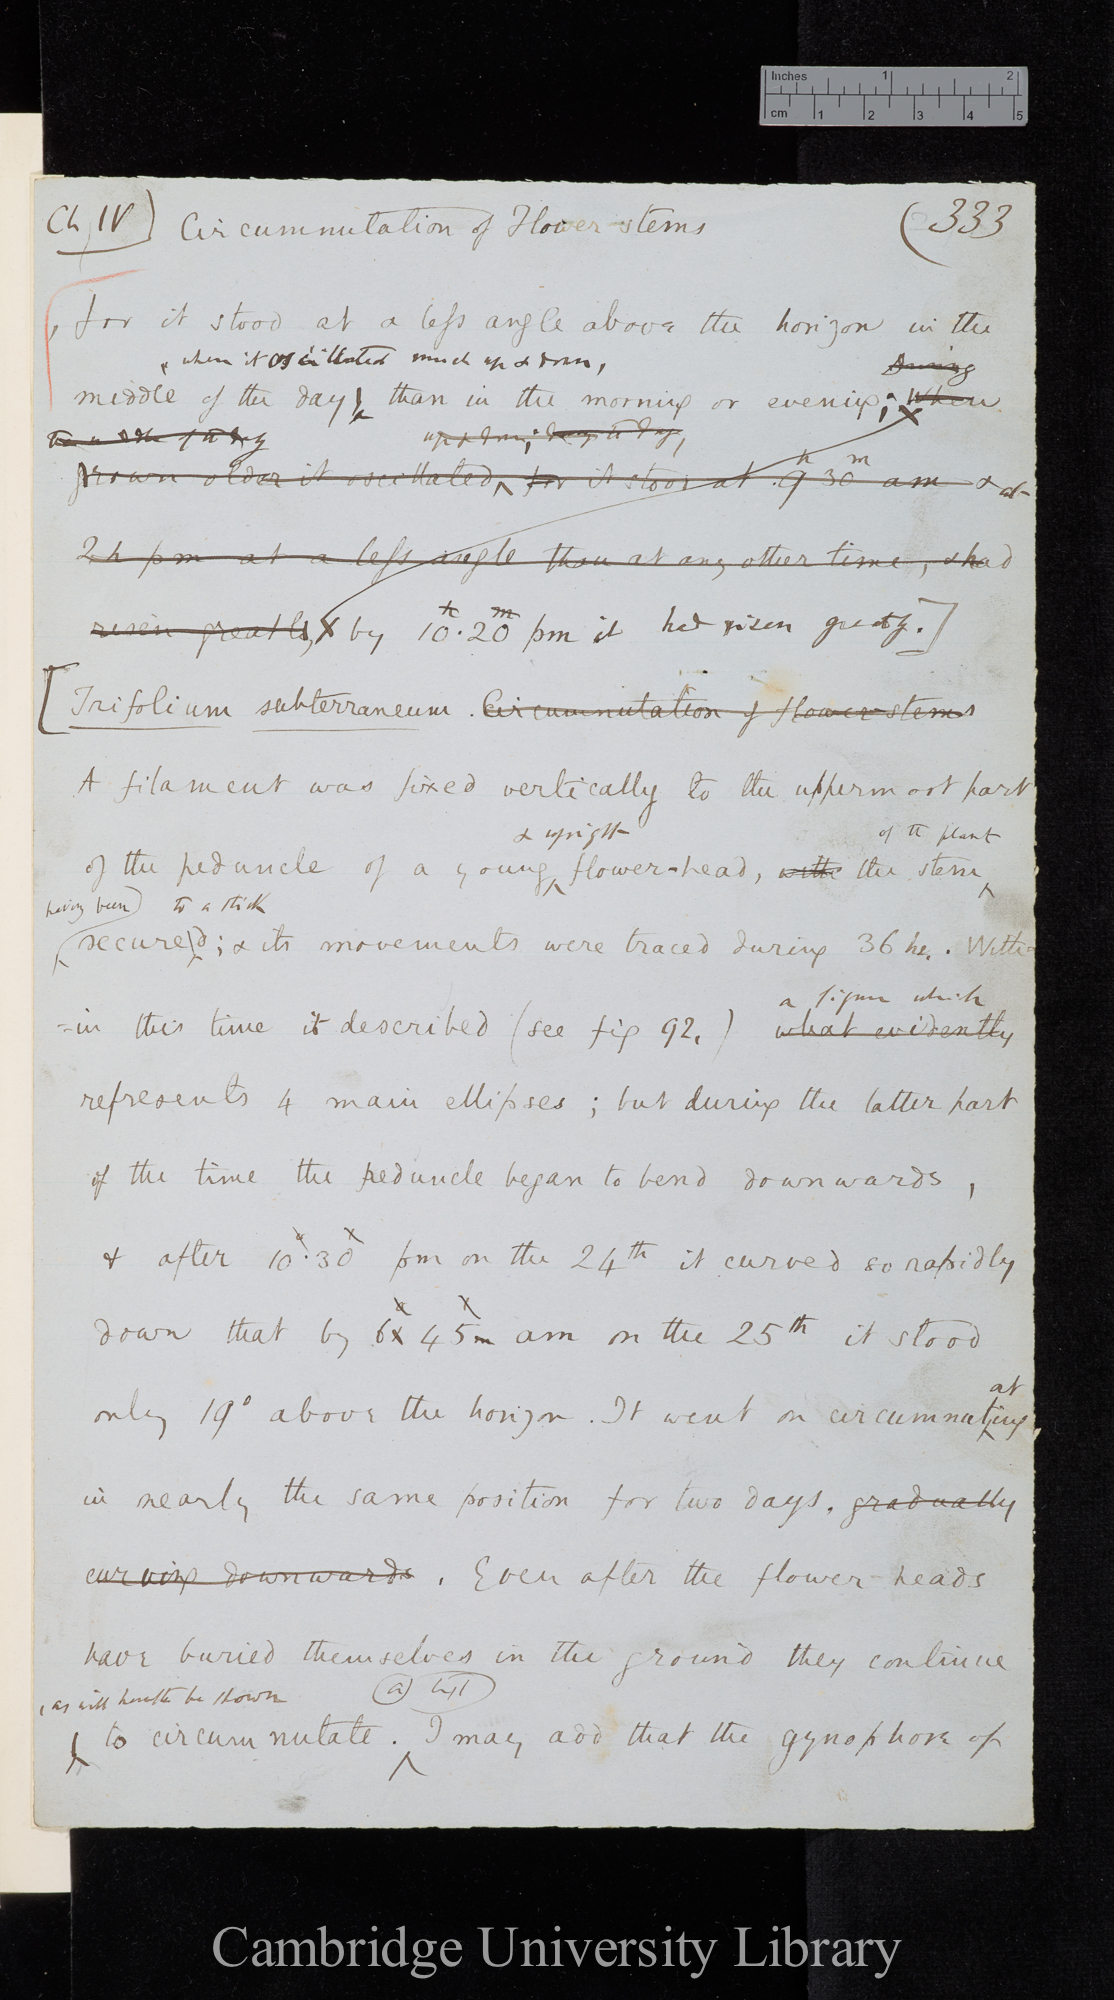 Inches 1 2
cm 1 2 3 4 5
Ch IV) Circumnutation of Flower-stems (333
, for it stood at a less angle above the horizon in the
, when it oscillated much up & down, During
middle of the day, than in the morning or evening; When
the middle of the day up & down; during the day,
grown older it oscillated, for it stood at 9h 30m am & at
2h pm at a less angle than at any other time, & had
risen greatly, X by 10h. 20m pm it had risen greatly.]
[Trifolium subterraneum. Circumnutation of flower-stems
A filament was fixed vertically to the uppermost part
& upright of the plant
of the peduncle of a young flower-head, with the stem
having been) to a stick
secured; & its movements were traced during 36 hr. With-
a figure which
-in this time it described (see fig 92.) what evidently
represents 4 main ellipses; but during the latter part
of the time the peduncle began to bend downwards,
& after 10.30 pm on the 24th it curved so rapidly
down that by 6 45m am on the 25th it stood
only 19° above the horizon. It went on circumnuting
at
in nearly the same position for two days. gradually
curving downwards. Even after the flower-heads
have buried themselves in the ground they continue
, as will hereafter be shown (a) text
to circumnutate. I may add that the gynophore of
Cambridge University Library